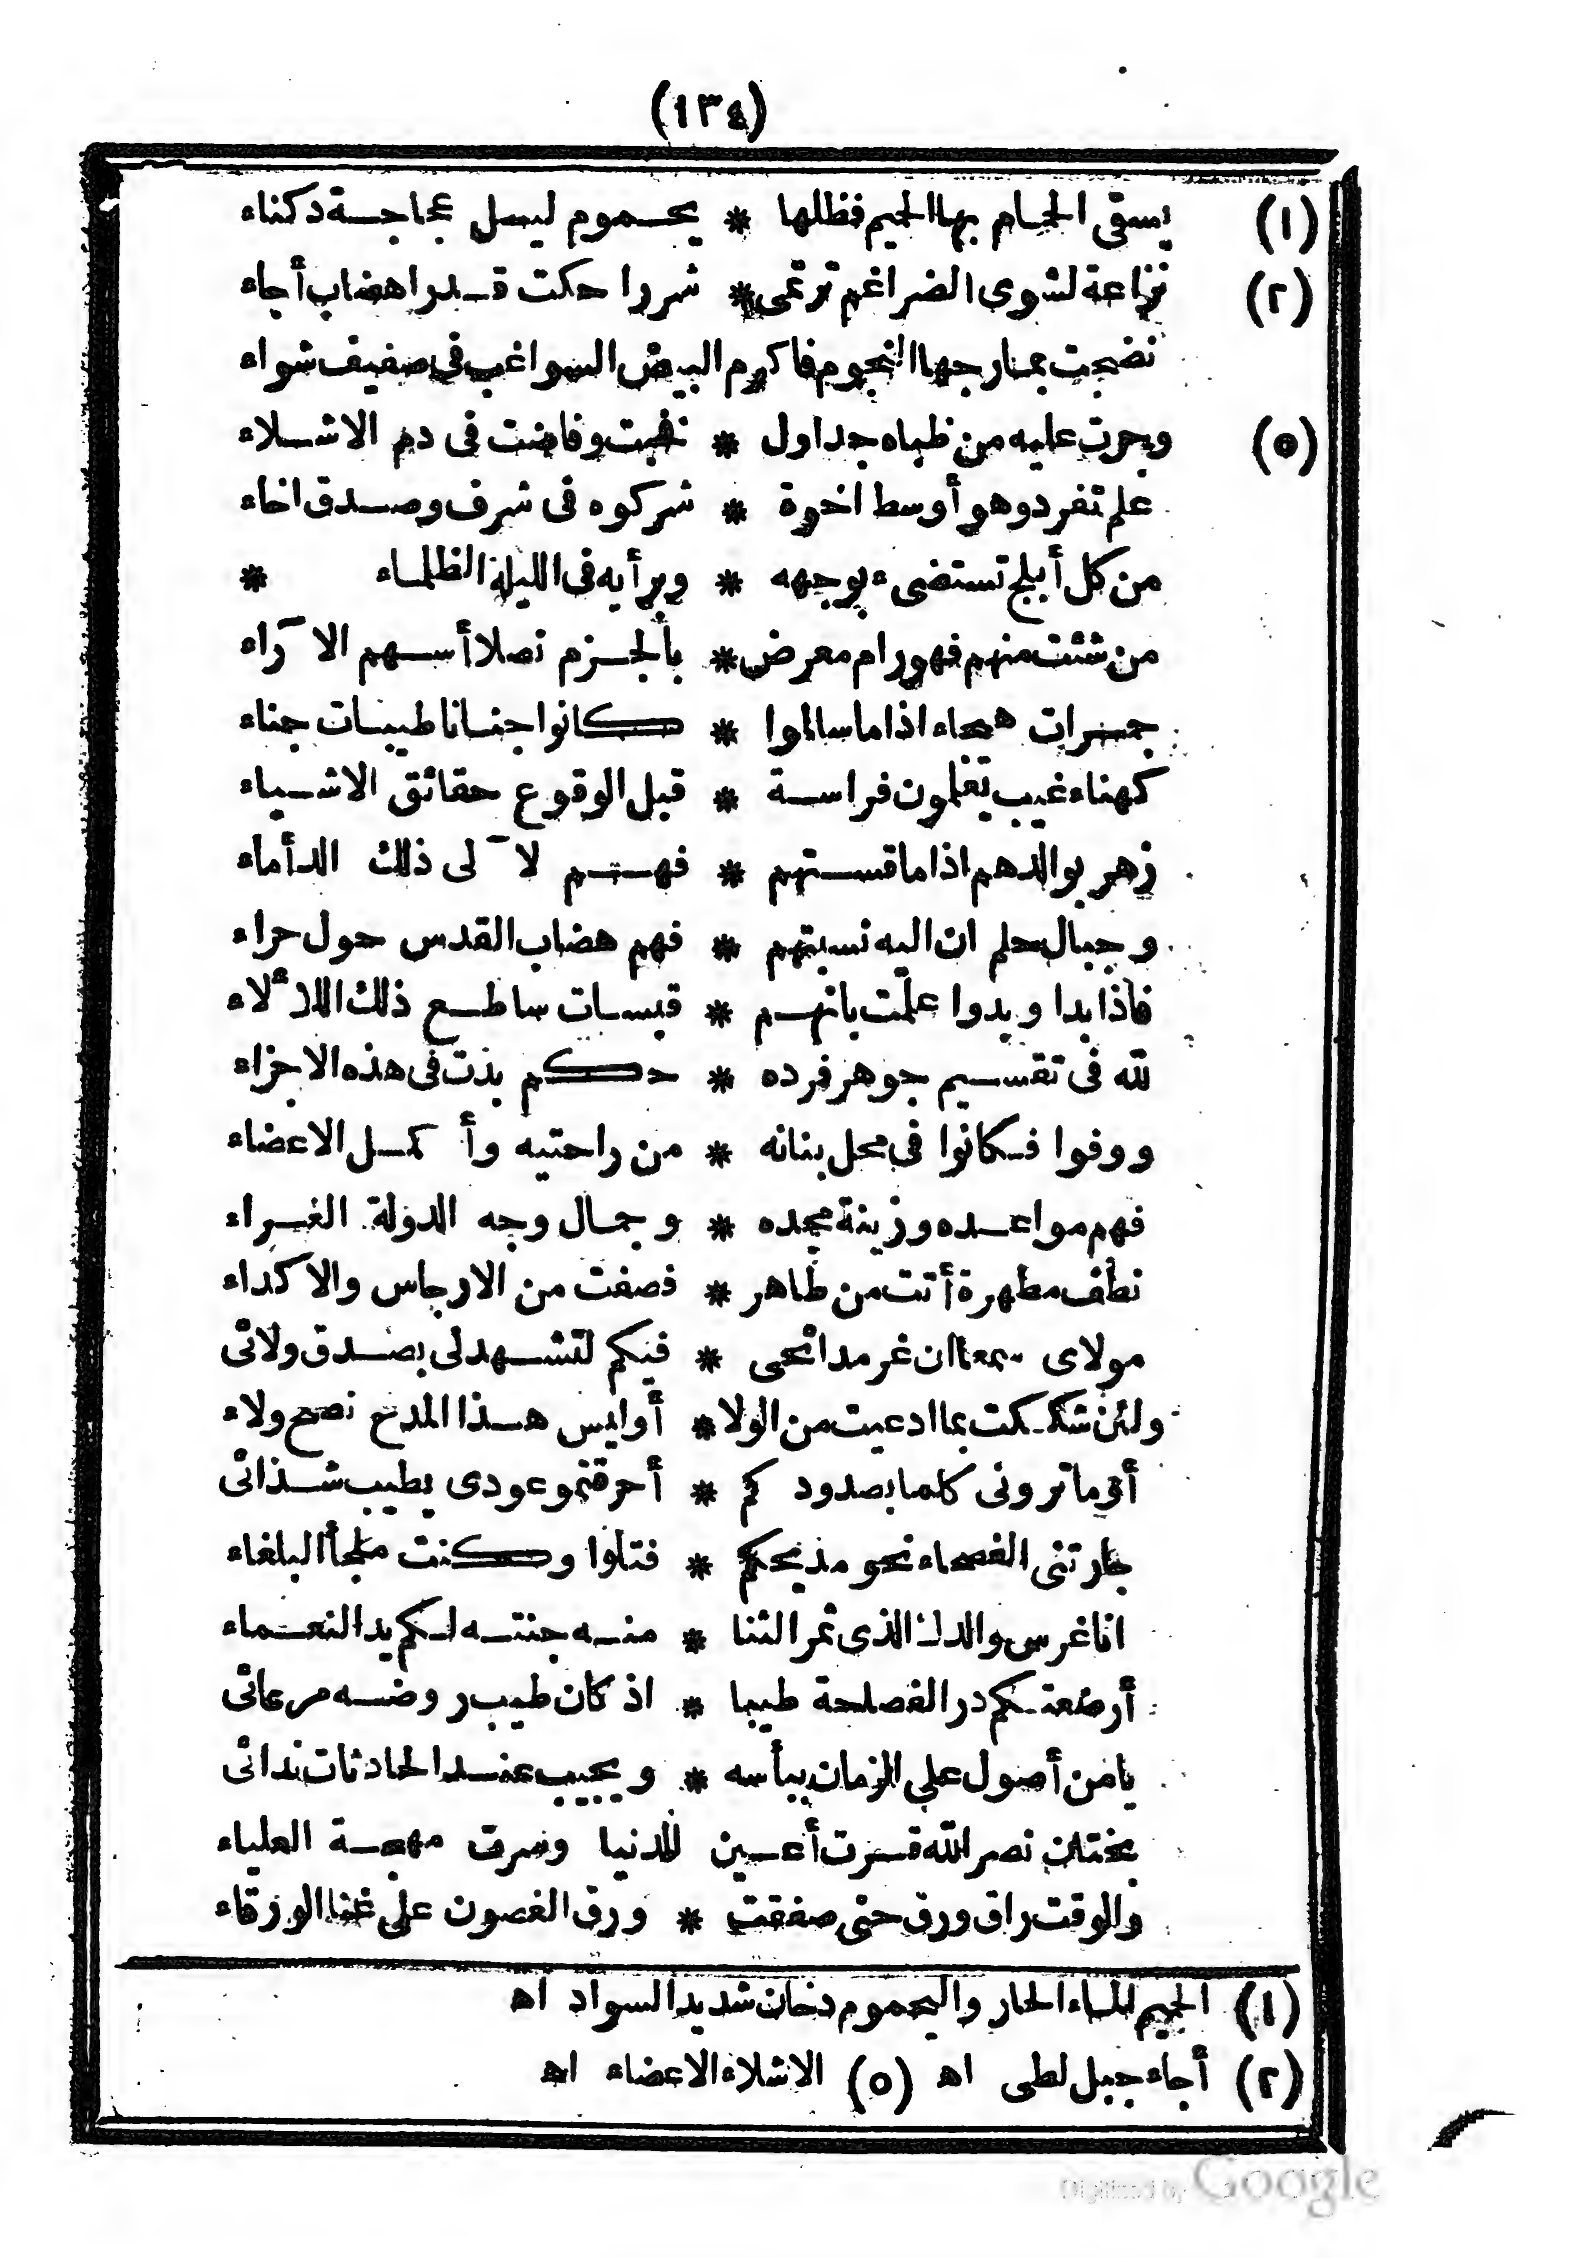 (١٣٤)
(١) يسقى الحمام بها الحميم فظلها * يحموم ليل عجاجة دكناء
(٢) نزاعة لشوى الضراغم ترتمى * شررا حكت قدرا هضاب أجاء
نضجت بمارجها النجوم فاكرم البيض السواغب فى صفيف شواء
(٥) وجرت عليه من ظباه جداول * نضبت وفاضت فى دم الاشلاء
علم تفرد وهو أوسط اخوة * شركوه فى شرف وصدق اخاء
من كل أبلج تستضىء بوجهه * وبرأيه فى الليلة الظلماء *
من شئت منهم فهو رام معرض * بالحزم نصلا أسهم الآراء
جمرات هيجاء اذا ما سالموا * كانوا جنانا طيبات جناء
كهناء غيب يعلمون فراسة * قبل الوقوع حقائق الاشياء
زهر بوالدهم اذا ما قستهم * فهم لآلى ذلك الدأماء
وجبال حلم ان اليه نسبتهم * فهم هضاب القدس حول حراء
فاذا بدا وبدوا علمت بانهم * قبسات ساطع ذلك اللألاء
لله فى تقسيم جوهر فرده * حكم بدت فى هذه الاجزاء
ووفوا فكانوا فى محل بنانه * من راحتيه وأكمل الاعضاء
فهم مواعده وزينة مجده * وجمال وجه الدولة الغراء
نطف مطهرة أتت من طاهر * فصفت من الارجاس والاكداء
مولاى سمعا ان غر مدائحى * فيكم لتشهد لى بصدق ولائى
ولئن شككت بما ادعيت من الولا * أوليس هذا المدح نصح ولاء
أوما ترونى كلما بصدودكم * أحرقتمو عودى يطيب شذائى
جارتنى الفصحاء نحو مديحكم * فتلوا وكنت ملجأ البلغاء
انا غرس والدك الذى ثمر الثنا * منه جنته لكم يد النعماء
أرضعتكم در الفصاحة طيبا * اذ كان طيب روضه مرعائى
يا من أصول على الزمان ببأسه * ويجيب عند الحادثات ندائى
بختان نصر الله قرت أعين للدنيا وسرت مهجة العلياء
والوقت راق ورق حتى صفقت * ورق الغصون على غنا الورقاء
(١) الحميم الماء الحار واليحموم دخان شديد السواد اه
(٢) أجاء جبل لطى اه (٥) الاشلاء الاعضاء اه
Digitized by Google